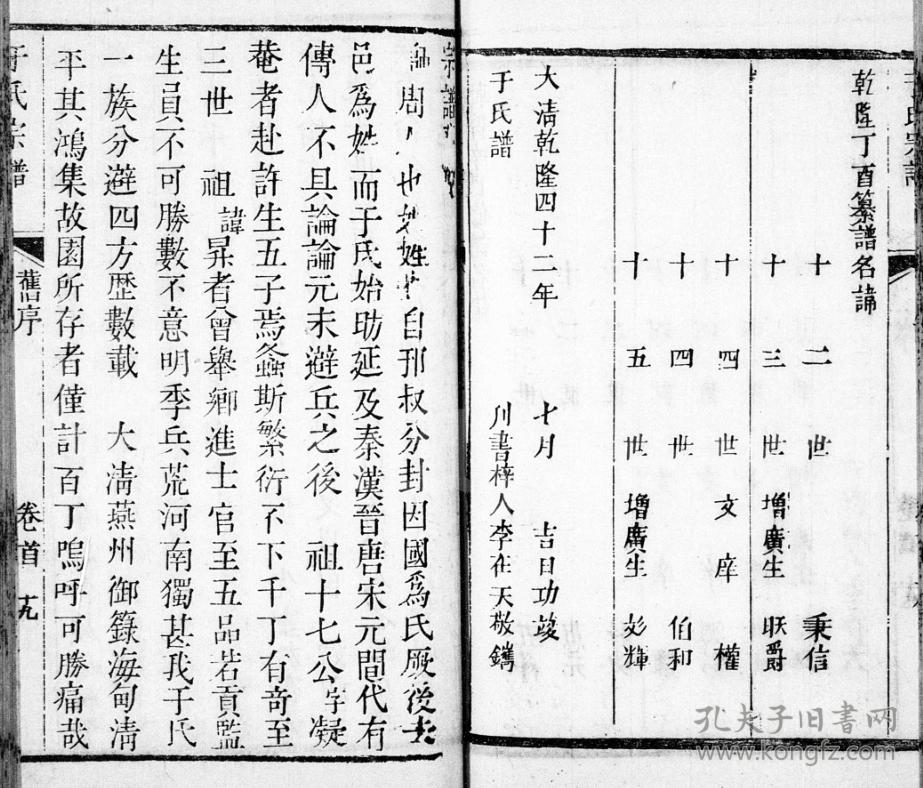 乾隆丁酉纂譜名諱
十二世 秉信
十三世增廣生 联爵
十四世文庠 權
十四世 伯和
十五世增廣生 彣輝
大清乾隆四十二年 七月 吉日功竣
于氏譜 刋書梓人李在天敬鐫
周 也 姓 自邘叔分封因國爲氏厥後去
邑爲姓而于氏始助延及秦漢晉唐宋元間代有
傳人不具論論元末避兵之後 祖十七公字凝
菴者赴許生五子焉螽斯繁衍不下千丁有奇至
三世 祖諱昇者曾舉鄉進士官至五品若貢監
生員不可勝數不意明季兵荒河南獨甚我于氏
一族分避四方歷數載 大清燕州御籙海甸清
平其鴻集故園所存者僅計百丁嗚呼可勝痛哉
于氏宗譜 舊序 卷首 十九
孔夫子旧書网
www.kongfz.com